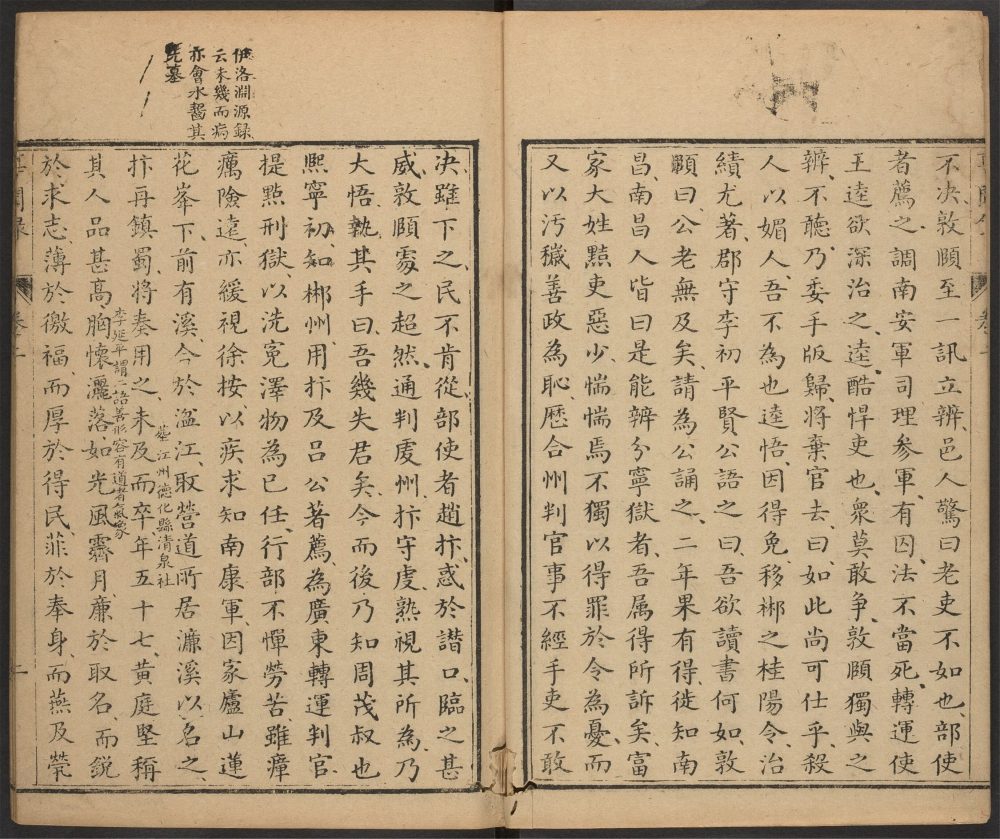 不决敦頤至一訊立辨邑人驚曰老吏不如也部使
者薦之調南安軍司理參軍有囚法不當死轉運使
王逵欲深治之逵酷悍吏也衆莫敢争敦頤獨與之
辨不聽乃委手版歸將棄官去曰如此尚可仕乎殺
人以媚人吾不為也逵悟因得免移郴之桂陽令治
績尤著郡守李初平賢公語之曰吾欲讀書何如敦
頤曰公老無及矣請為公誦之二年果有得徙知南
昌南昌人皆曰是能辨分寧獄者吾属得所訴矣富
家大姓黠吏惡少惴惴焉不獨以得罪於令為憂而
又以汚穢善政為恥歷合州判官事不經手吏不敢
决雖下之民不肯從部使者趙抃惑於譖口臨之甚
威敦頤處之超然通判虔州抃守虔熟視其所為乃
大悟執其手曰吾幾失君矣今而後乃知周茂叔也
熙寧初知郴州用抃及呂公著薦為廣東轉運判官
提點刑獄以洗冤澤物為已任行部不憚勞苦雖瘴
癘險遠亦緩視徐按以疾求知南康軍因家廬山蓮
花峯下前有溪合於湓江取營道所居濂溪以名之
抃再鎮蜀將奏用之未及而卒年五十七黄庭堅稱
葬江州德化縣清泉社
其人品甚高胸懷灑落如光風霽月廉於取名而鋭
李延平謂二語善形容有道者氣象
於求志薄於徼福而厚於得民菲於奉身而燕及煢
伊洛淵源録
云未幾而病
亦會水齧其
先墓
卷二
二